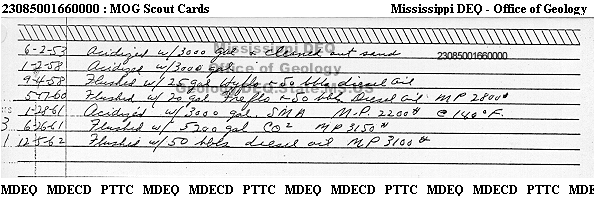 23085001660000 : MOG Scout Cards Mississippi DEQ - Office of Geology
Mississippi DEQ
6-2-53 Acidized w/3000 gal & cleaned out sand 23085001660000
1-2-58 Acidized w/3000 gal.
Office of Geology
9-4-58 Flushed w/25 gal Hyflo & 50 bbls diesel oil
Geology.DEQ.State.MS.US
5-7-60 Flushed w/20 gal Hyflo & 50 bbls Diesel oil. MP 2800#
1-28-61 Acidized w/3000 gal. SMA M.P. 2200# @ 140°F.
3 6-26-61 Flushed w/ 5200 gal CO2 MP 3150#
1 12-5-62 Flushed w/50 bbls diesel oil MP 3100#
MDEQ MDECD PTTC MDEQ MDECD PTTC MDEQ MDECD PTTC MDEQ MDECD PTTC